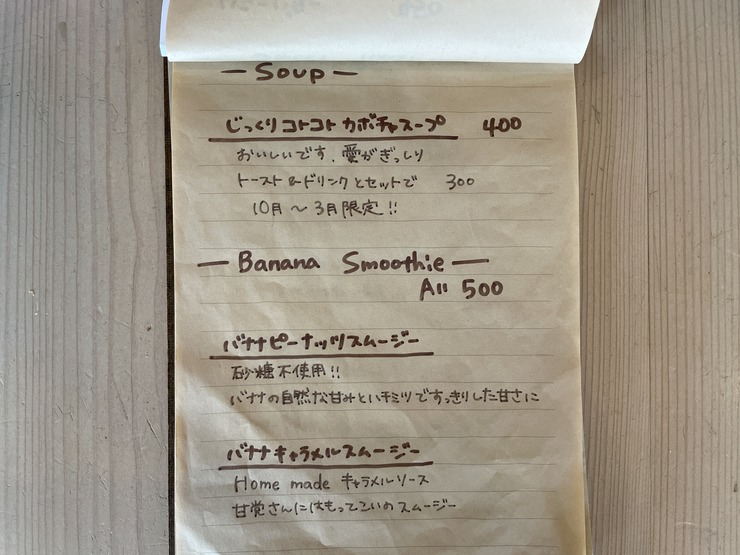 — Soup —
じっくりコトコト カボチャスープ 400
おいしいです、愛がぎっしり
トースト&ドリンクとセットで 300
10月〜3月限定!!
— Banana Smoothie —
All 500
バナナピーナッツスムージー
砂糖不使用!!
バナナの自然な甘みとハチミツですっきりした甘さに
バナナキャラメルスムージー
Home made キャラメルソース
甘党さんにはもってこいのスムージー